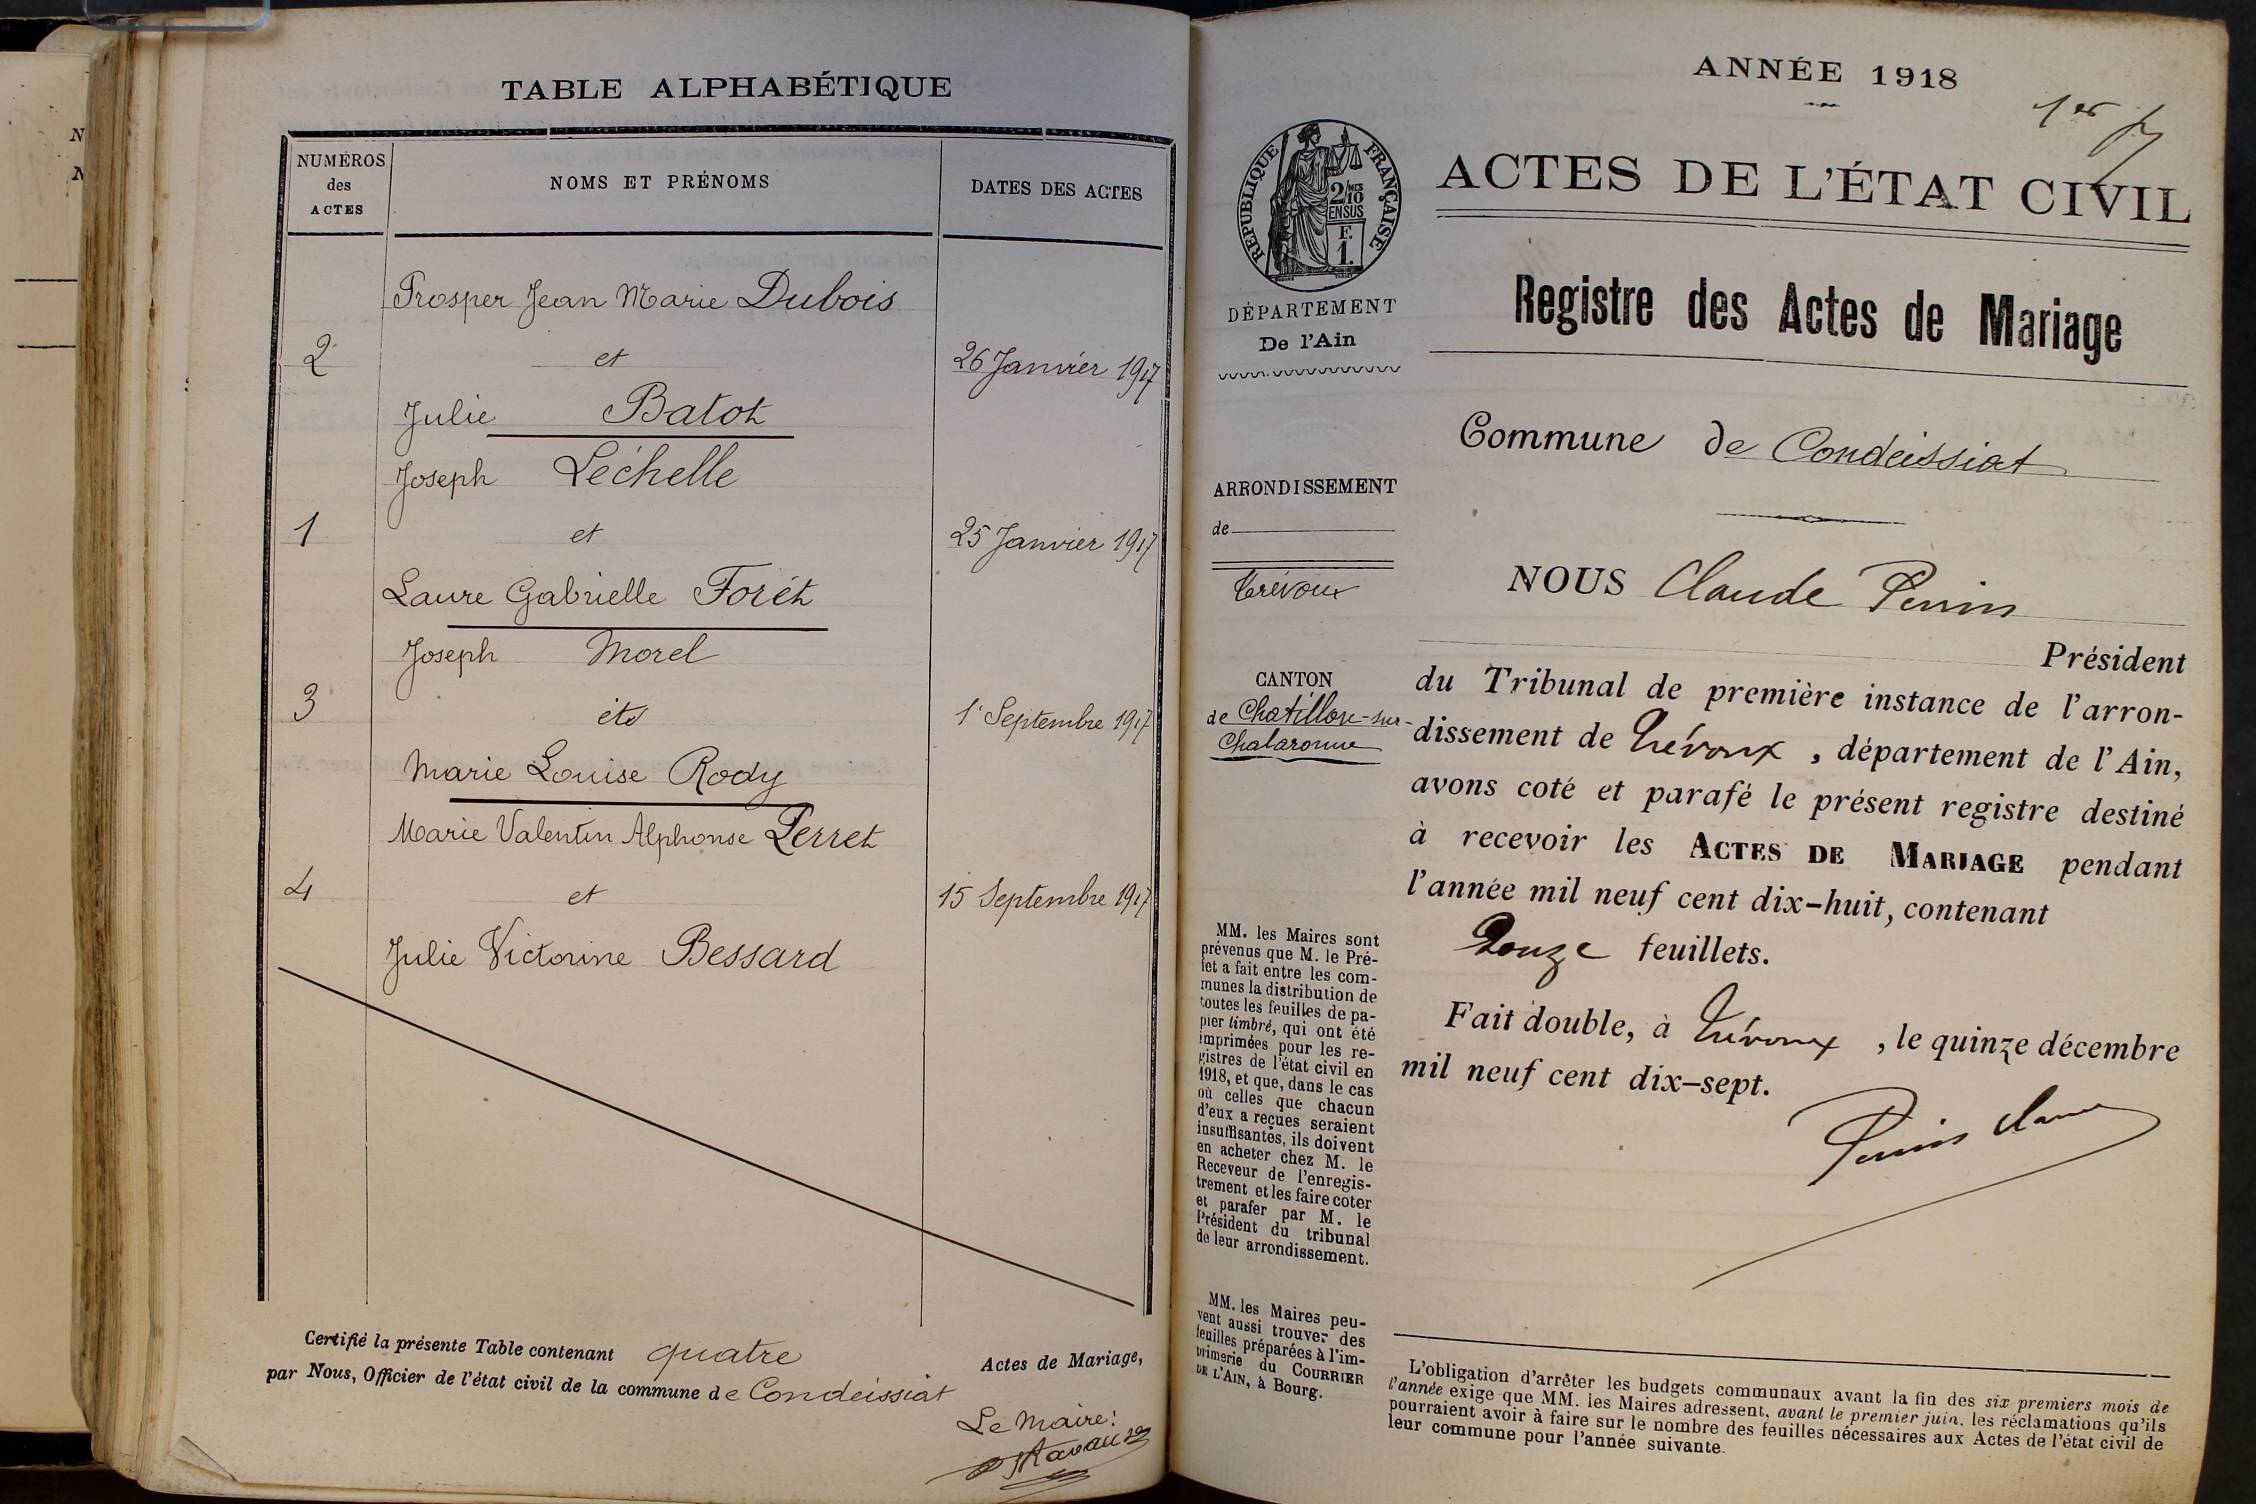 TABLE ALPHABÉTIQUE
NUMÉROS
des
ACTES
NOMS ET PRÉNOMS
DATES DES ACTES
Prosper Jean Marie Dubois
2 et 26 Janvier 1917
Julie Batot
Joseph Léchelle
1 et 25 Janvier 1917
Laure Gabrielle Forêt
Joseph Morel
3 et 1r Septembre 1917
Marie Louise Rody
Marie Valentin Alphonse Perret
4 et 15 Septembre 1917
Julie Victorine Bessard
Certifié la présente Table contenant quatre Actes de Mariage,
par Nous, Officier de l'état civil de la commune de Condeissiat
Le Maire:
ANNÉE 1918
1er
ACTES DE L'ÉTAT CIVIL
RÉPUBLIQUE FRANÇAISE
2/10 MES
EN SUS
F.
1.
DÉPARTEMENT
De l'Ain
ARRONDISSEMENT
de
Trévoux
CANTON
de Chatillon-sur-
Chalaronne
MM. les Maires sont
prévenus que M. le Pré-
fet a fait entre les com-
munes la distribution de
toutes les feuilles de pa-
pier timbré, qui ont été
imprimées pour les re-
gistres de l'état civil en
1918, et que, dans le cas
où celles que chacun
d'eux a reçues seraient
insuffisantes, ils doivent
en acheter chez M. le
Receveur de l'enregis-
trement et les faire coter
et parafer par M. le
Président du tribunal
de leur arrondissement.
MM. les Maires peu-
vent aussi trouver des
feuilles préparées à l'im-
primerie du COURRIER
DE L'AIN, à Bourg.
Registre des Actes de Mariage
Commune de Condeissiat
NOUS Claude Perrin
Président
du Tribunal de première instance de l'arron-
dissement de Trévoux, département de l'Ain,
avons coté et parafé le présent registre destiné
à recevoir les ACTES DE MARIAGE pendant
l'année mil neuf cent dix-huit, contenant
Douze feuillets.
Fait double, à Trévoux, le quinze décembre
mil neuf cent dix-sept.
Perrin Claude
L'obligation d'arrêter les budgets communaux avant la fin des six premiers mois de
l'année exige que MM. les Maires adressent, avant le premier juin, les réclamations qu'ils
pourraient avoir à faire sur le nombre des feuilles nécessaires aux Actes de l'état civil de
leur commune pour l'année suivante.